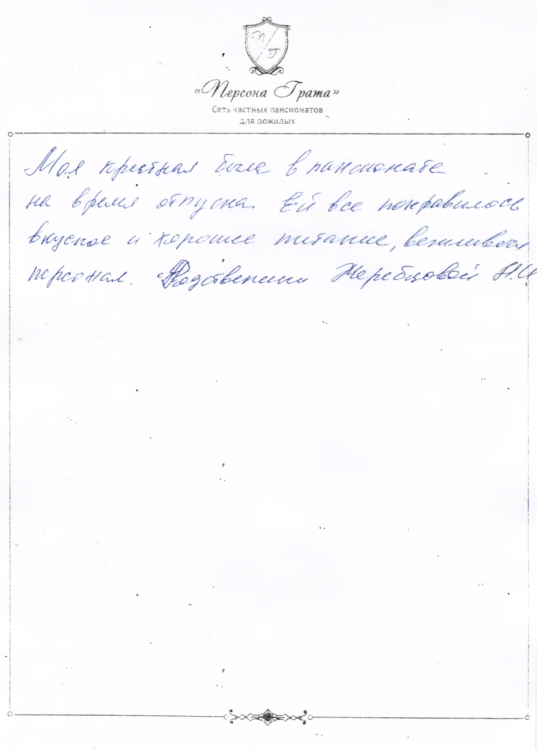 П Г
«Персона Грата»
Сеть частных пансионатов
для пожилых
Моя крестная была в пансионате
на время отпуска. Ей все понравилось
вкусное и хорошее питание, вежливый
персонал. Родственники Жеребцовой Н.И